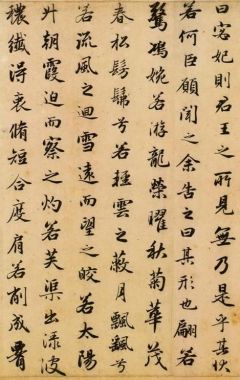 曰宓妃則君王之所見無乃是乎其狀
若何臣願聞之余告之曰其形也翩若
驚鴻婉若游龍榮曜秋菊華茂
春松髣髴兮若輕雲之蔽月飄颻兮
若流風之迴雪遠而望之皎若太陽
升朝霞迫而察之灼若芙渠出淥波
穠纖得衷脩短合度肩若削成